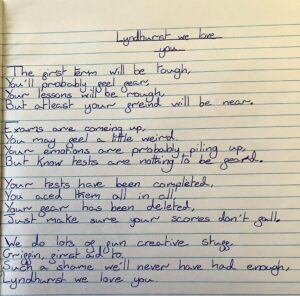 Lyndhurst we love
you
The first term will be tough,
You'll probably feel fear,
Your lessons will be rough,
But atleast your freind will be near.
Exams are comeing up,
You may feel a little weird
Your emotions are probably piling up,
But know tests are nothing to be feard.
Your tests have been completed,
You aced them all in all
Your fear has been deleted,
Just make sure your scores don't fall.
We do lots of fun creative stuff,
Griffin, first aid to.
Such a shame we'll never have had enough,
Lyndhurst we love you.